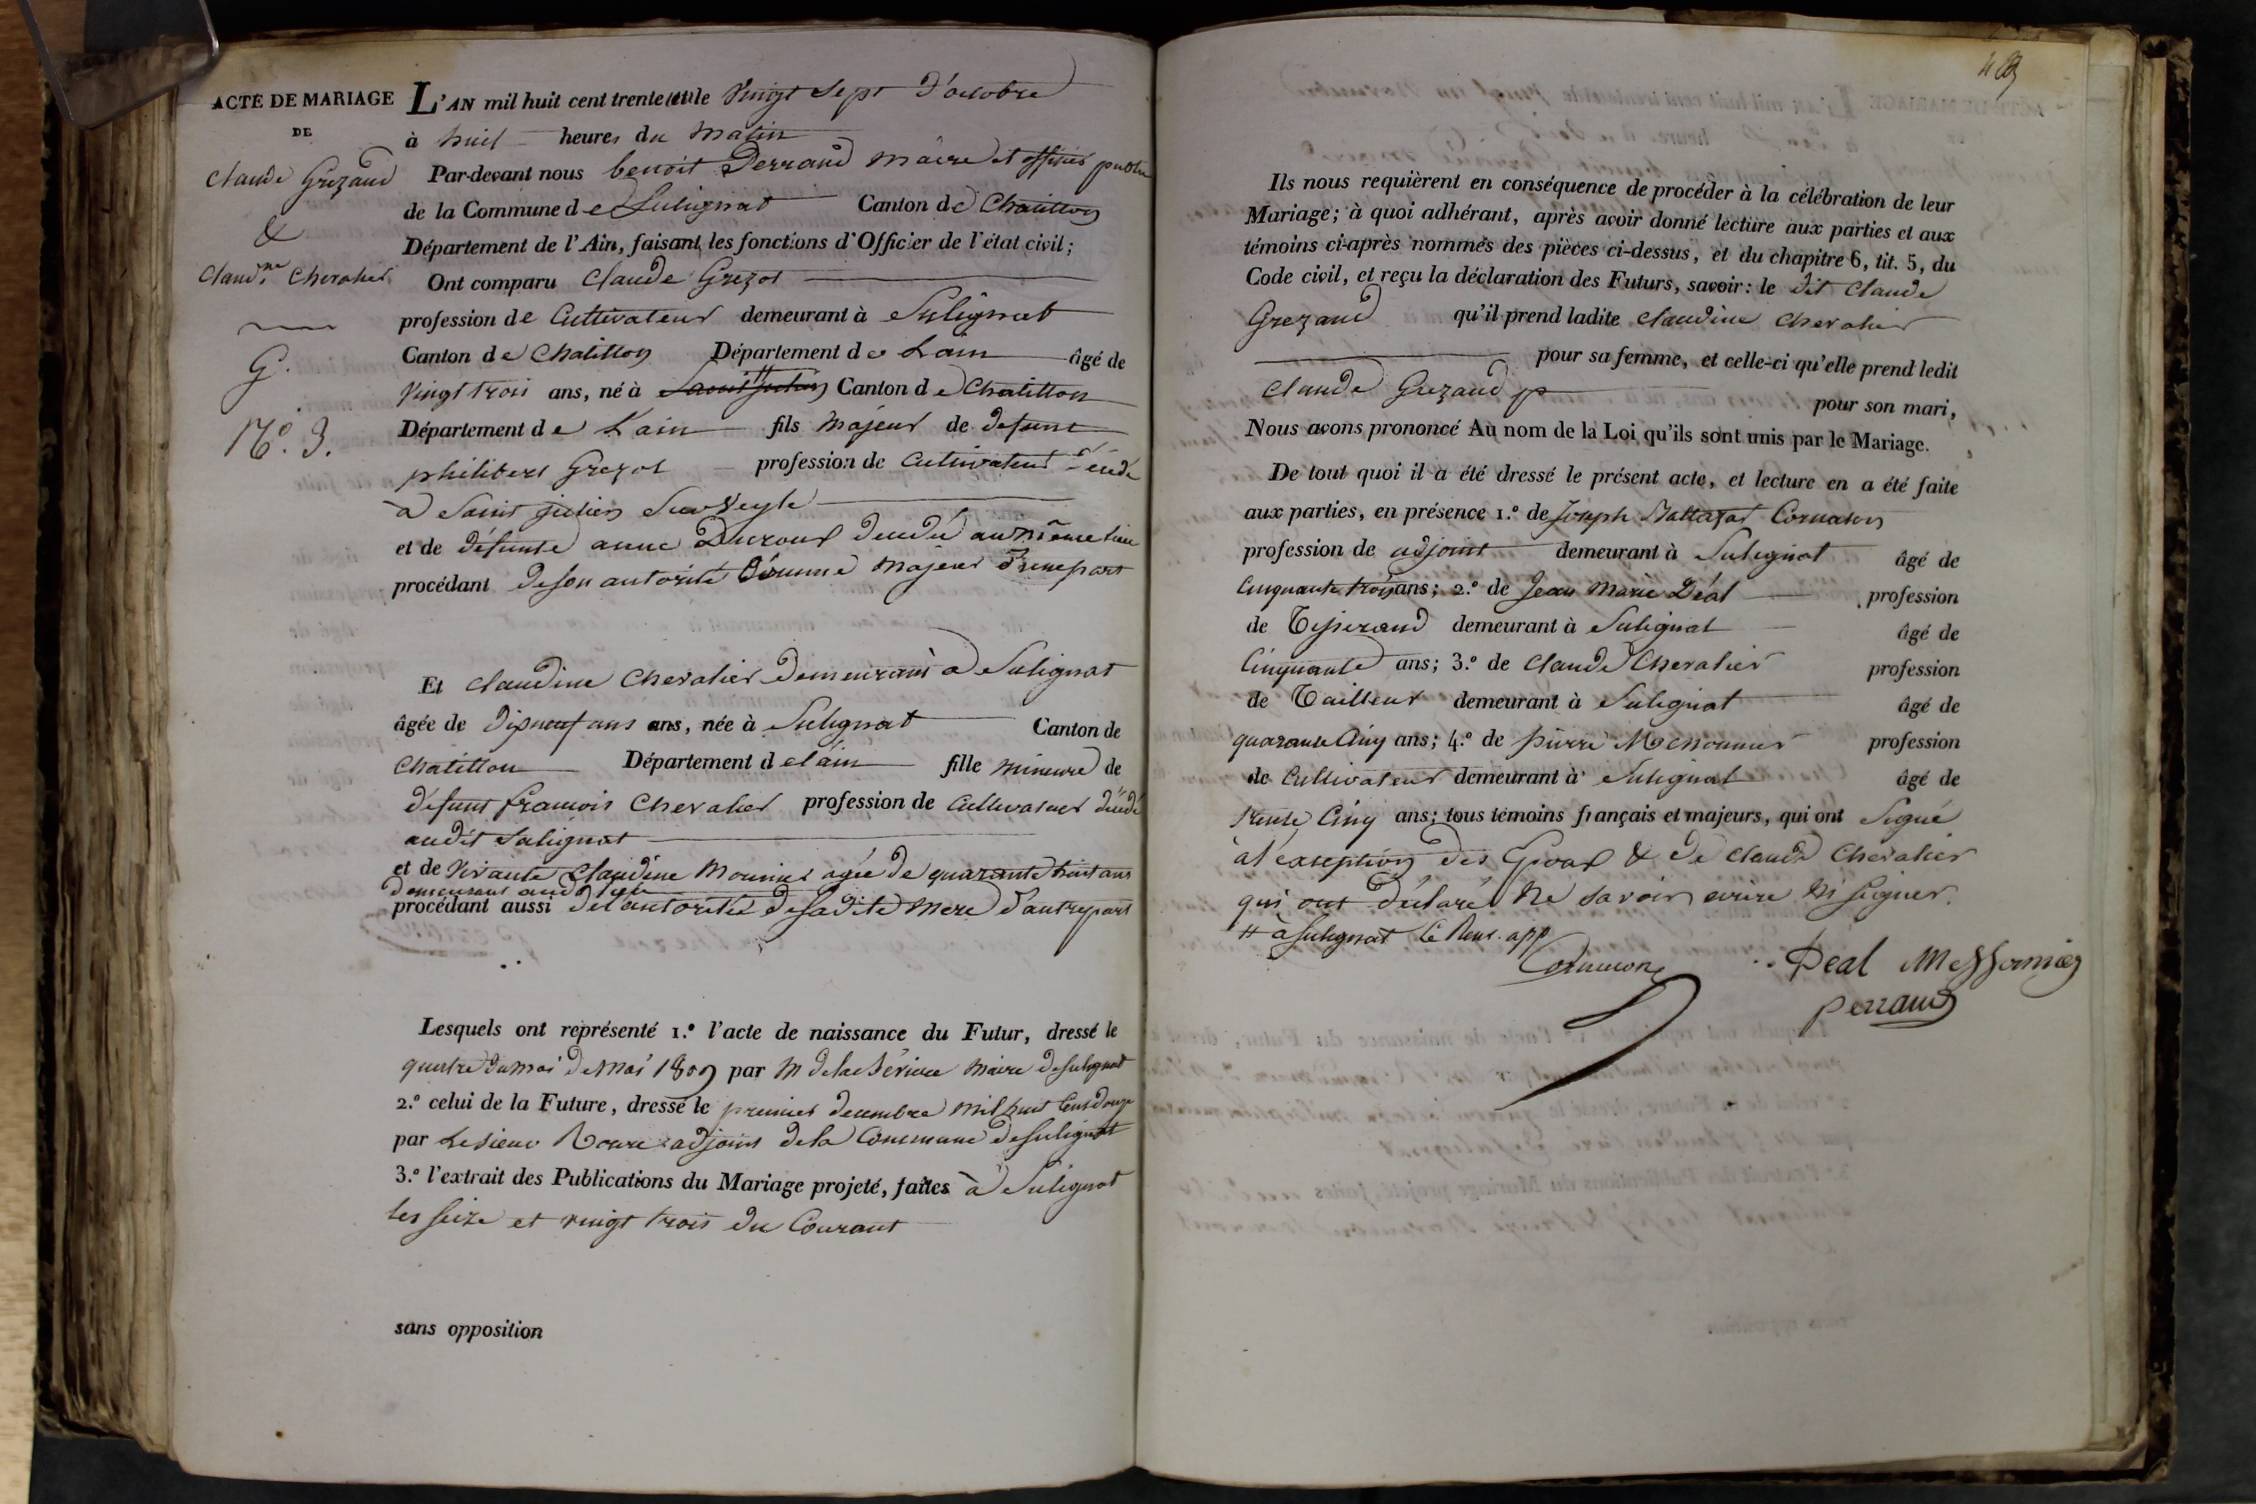 ACTE DE MARIAGE
DE
Claude Grézaud
&
Claud.ne Chevalier
G.
N.o 3.
L'AN mil huit cent trente et le Vingt Sept d'octobre
à huit heures du Matin
Par-devant nous benoit Perraud Maire et officier public
de la Commune de Sulignat Canton de Chatillon
Département de l'Ain, faisant les fonctions d'Officier de l'état civil;
Ont comparu Claude Grezot
profession de Cultivateur demeurant à Sulignat
Canton de Chatillon Département de Lain âgé de
Vingt trois ans, né à Saint julien # Canton de Chatillon
Département de Lain fils Majeur de defunt
philibert Grezot profession de Cultivateur décédé
à Saint julien Sur Veyle
et de défunte anne Duroux décédé au même lieu
procédant de son autorité Comme Majeur d'une part
Et Claudine Chevalier demeurant à Sulignat
âgée de dixneuf ans ans, née à Sulignat Canton de
Chatillon Département de lain fille mineure de
défunt francois Chevalier profession de Cultivateur décédé
audit Sulignat
et de Vivante Claudine Mounier agée de quarante huit ans
demeurant audit lieu
procédant aussi de l'autorité de sadite Mere d'autre part
Lesquels ont représenté 1.º l'acte de naissance du Futur, dressé le
quatre du moi de Mai 1807 par M de la Bévière Maire de Sulignat
2.º celui de la Future, dressé le premier decembre Mil huit Cent douze
par Le Sieur adjoint de la Commune de Sulignat
3.º l'extrait des Publications du Mariage projeté, faites à Sulignat
les Seize et vingt trois du Courant
sans opposition
Ils nous requièrent en conséquence de procéder à la célébration de leur
Mariage; à quoi adhérant, après avoir donné lecture aux parties et aux
témoins ci-après nommés des pièces ci-dessus, et du chapitre 6, tit. 5, du
Code civil, et reçu la déclaration des Futurs, savoir: le dit Claude
Grezaud qu'il prend ladite Claudine Chevalier
pour sa femme, et celle-ci qu'elle prend ledit
Claude Grezaud
pour son mari,
Nous avons prononcé Au nom de la Loi qu'ils sont unis par le Mariage.
De tout quoi il a été dressé le présent acte, et lecture en a été faite
aux parties, en présence 1.º de Joseph Baltazar Cornaton
profession de adjoint demeurant à Sulignat âgé de
Cinquante trois ans; 2.º de Jean Marie Déal profession
de Tisserand demeurant à Sulignat âgé de
Cinquante ans; 3.º de Claude Chevalier profession
de Tailleur demeurant à Sulignat âgé de
quarante Cinq ans; 4.º de pierre Messonnier profession
de Cultivateur demeurant à Sulignat âgé de
trente Cinq ans; tous témoins français et majeurs, qui ont Signé
à l'exception des Epoux & de Claude Chevalier
qui ont déclaré Ne savoir ecrire Ni Signer.
# à Sulignat le Renv. app
Cornaton
Deal Messonnier
Perraud